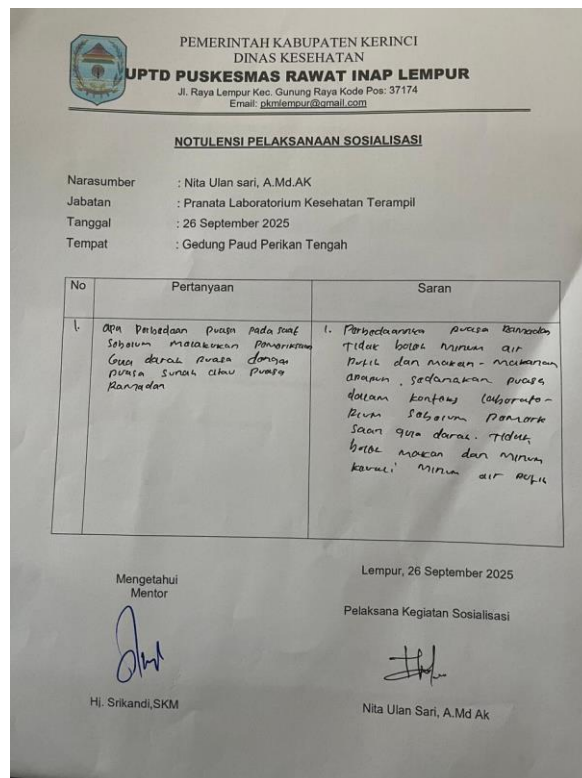 PEMERINTAH KABUPATEN KERINCI
DINAS KESEHATAN
UPTD PUSKESMAS RAWAT INAP LEMPUR
Jl. Raya Lempur Kec. Gunung Raya Kode Pos: 37174
Email: pkmlempur@gmail.com
NOTULENSI PELAKSANAAN SOSIALISASI
Narasumber : Nita Ulan sari, A.Md.AK
Jabatan : Pranata Laboratorium Kesehatan Terampil
Tanggal : 26 September 2025
Tempat : Gedung Paud Perikan Tengah
No Pertanyaan Saran
1. apa Perbedaan Puasa Pada saat
Sebelum Melakukan Pemeriksaan
Gula darah Puasa dengan
Puasa sunah atau Puasa
Ramadan
1. Perbedaannya puasa Ramadan
Tidak boleh minum air
Putih dan makan-makanan
apapun. sedanakan puasa
dalam konteks laborato-
rium sebelum pemerik
saan gula darah. Tidak
boleh makan dan minum
kecuali minum air putih
Mengetahui
Mentor
Hj. Srikandi,SKM
Lempur, 26 September 2025
Pelaksana Kegiatan Sosialisasi
Nita Ulan Sari, A.Md Ak